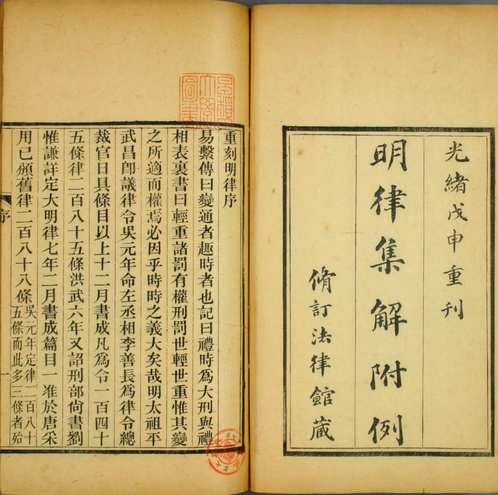 光緒戊申重刊
明律集解附例
脩訂法律館藏
重刻明律序
易繫傳曰變通者趣時者也記曰禮時爲大刑與禮
相表裏書曰輕重諸罰有權刑罰世輕世重惟其變
之所適而權焉必因乎時時之義大矣哉明太祖平
武昌卽議律令吳元年命左丞相李善長爲律令總
裁官日具條目以上十二月書成凡爲令一百四十
五條律二百八十五條洪武六年又詔刑部尙書劉
惟謙詳定大明律七年二月書成篇目一准於唐采
用已頒舊律二百八十八條吳元年定律二百八十五條而此多三條者殆
序
一